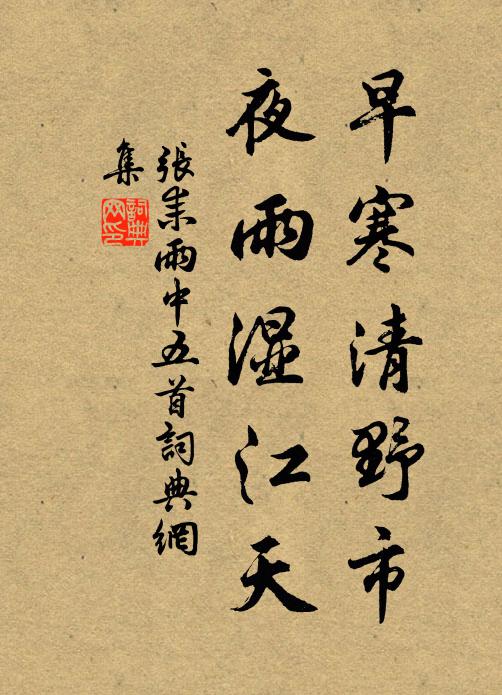 早寒清野市
夜雨湿江天
張耒雨中五首詞典網
集
詞典
网印